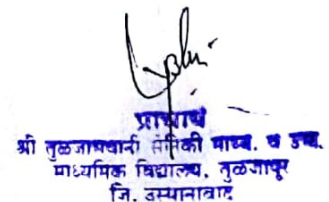 प्राचार्य
श्री तुळजाभवानी सैनिकी माध्य. व उच्च.
माध्यमिक विद्यालय, तुळजापूर
जि. उस्मानाबाद